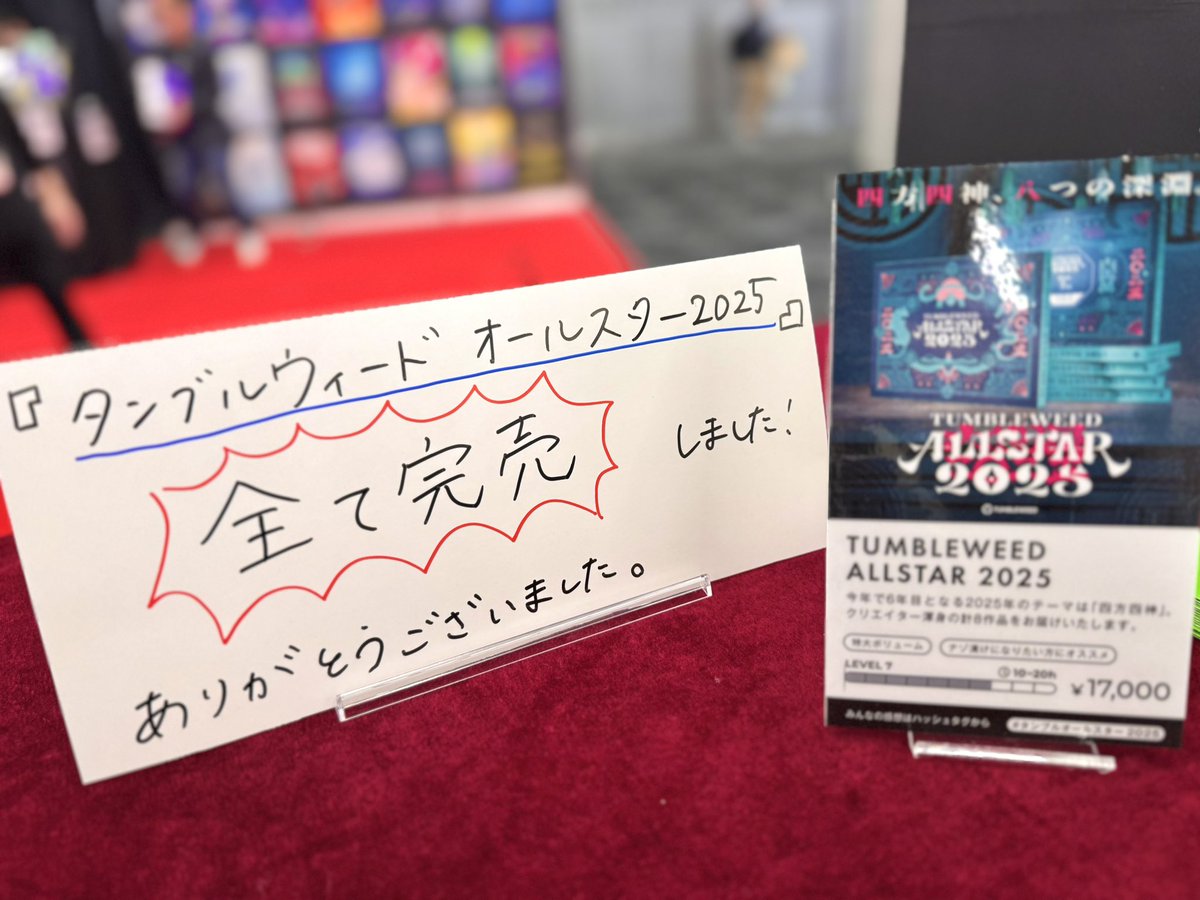 『タンブルウィード オールスター2025』
全て完売 しました!
ありがとうございました。
四方四神、八つの深淵
TUMBLEWEED
ALLSTAR
2025
TUMBLEWEED
ALLSTAR
2025
TUMBLEWEED
TUMBLEWEED
ALLSTAR 2025
今年で6年目となる2025年のテーマは「四方四神」。
クリエイター渾身の計8作品をお届けいたします。
特大ボリューム ナゾ漬けになりたい方にオススメ
LEVEL 7 10~20h
¥17,000
みんなの感想はハッシュタグから #タンブルオールスター2025